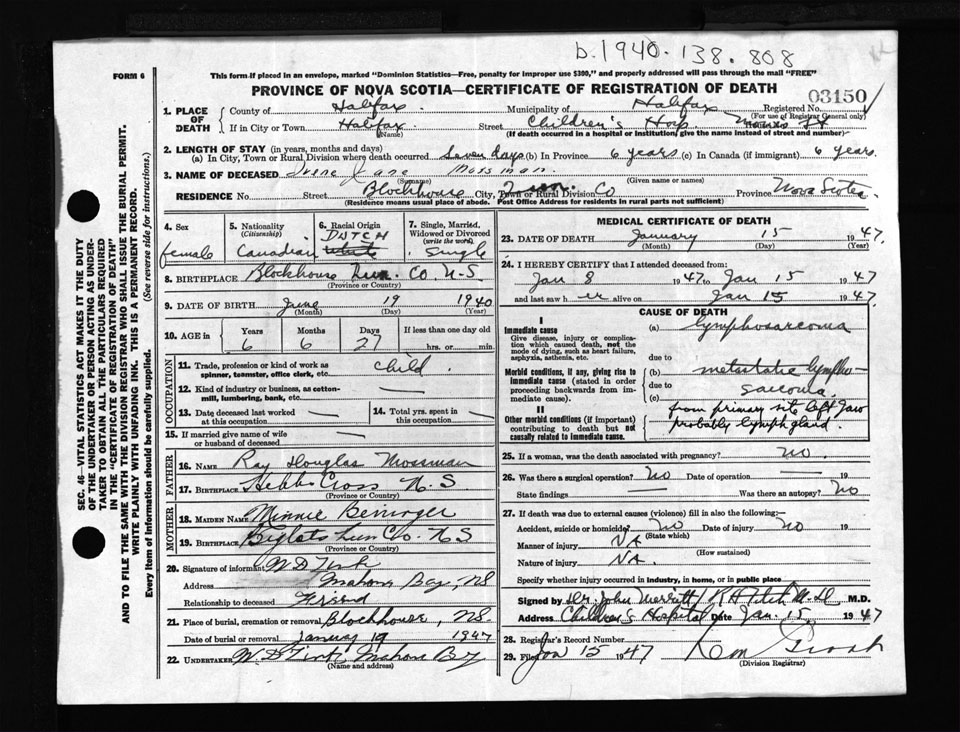 b. 1940. 138. 808
FORM 6
This form if placed in an envelope, marked "Dominion Statistics—Free, penalty for improper use $300," and properly addressed will pass through the mail "FREE"
PROVINCE OF NOVA SCOTIA—CERTIFICATE OF REGISTRATION OF DEATH
03150
1. PLACE OF DEATH
County of Halifax. Municipality of Halifax Registered No.
(For use of Registrar General only)
If in City or Town Halifax (Name) Street Children's Hosp.
(If death occurred in a hospital or institution, give the name instead of street and number)
2. LENGTH OF STAY (in years, months and days)
(a) In City, Town or Rural Division where death occurred Seven days (b) In Province 6 years (c) In Canada (if immigrant) 6 years.
3. NAME OF DECEASED Irene Jane Mossman
(Surname) (Given name or names)
RESIDENCE No. Street Blockhouse City, Town or Rural Division Lun. Co Province Nova Scotia
(Residence means usual place of abode. Post Office Address for residents in rural parts not sufficient)
4. Sex female
5. Nationality (Citizenship) Canadian
6. Racial Origin DUTCH white
7. Single, Married, Widowed or Divorced (write the word) Single
8. BIRTHPLACE Blockhouse Lun. Co N-S
(Province or Country)
9. DATE OF BIRTH June 19 1940
(Month) (Day) (Year)
10. AGE in Years 6 Months 6 Days 27 If less than one day old hrs. or min.
OCCUPATION
11. Trade, profession or kind of work as spinner, teamster, office clerk, etc. child.
12. Kind of industry or business, as cotton-mill, lumbering, bank, etc. —
13. Date deceased last worked at this occupation —
14. Total yrs. spent in this occupation —
15. If married give name of wife or husband of deceased —
FATHER
16. NAME Ray Douglas Mossman
17. BIRTHPLACE Hebbs Cross N.S
(Province or Country)
MOTHER
18. MAIDEN NAME Minnie
19. BIRTHPLACE Lun Co. NS
(Province or Country)
20. Signature of informant W D Zink
Address Mahone Bay, NS
Relationship to deceased Friend
21. Place of burial, cremation or removal Blockhouse, NS.
Date of burial or removal January 19 1947
22. UNDERTAKER W. D Zink Mahone Bay
(Name and address)
MEDICAL CERTIFICATE OF DEATH
23. DATE OF DEATH January 15 1947.
(Month) (Day) (Year)
24. I HEREBY CERTIFY that I attended deceased from:
Jan 8 1947 to Jan 15 1947
and last saw h er alive on Jan 15 1947.
CAUSE OF DEATH
I
Immediate cause
Give disease, injury or complication which caused death, not the mode of dying, such as heart failure, asphyxia, asthenia, etc.
(a) lymphosarcoma
due to
Morbid conditions, if any, giving rise to immediate cause (stated in order proceeding backwards from immediate cause).
(b) metastatic lympho-
due to
(c) sarcoma
II
Other morbid conditions (if important) contributing to death but not causally related to immediate cause.
from primary site left jaw
probably lymph gland.
25. If a woman, was the death associated with pregnancy? no.
26. Was there a surgical operation? No Date of operation — 19
State findings — Was there an autopsy? No
27. If death was due to external causes (violence) fill in also the following:—
Accident, suicide or homicide? No Date of injury no 19
(State which)
Manner of injury NA
(How sustained)
Nature of injury NA.
Specify whether injury occurred in industry, in home, or in public place
Signed by Dr. John Merritt / M.D. M.D.
Address Children's Hospital Date Jan. 15 1947
28. Registrar's Record Number
29. Filed Jan 15 1947
(Division Registrar)
SEC. 46—VITAL STATISTICS ACT MAKES IT THE DUTY
OF THE UNDERTAKER OR PERSON ACTING AS UNDER-
TAKER TO OBTAIN ALL THE PARTICULARS REQUIRED
IN THE "CERTIFICATE OF REGISTRATION OF DEATH"
AND TO FILE THE SAME WITH THE DIVISION REGISTRAR WHO SHALL ISSUE THE BURIAL PERMIT.
WRITE PLAINLY WITH UNFADING INK. THIS IS A PERMANENT RECORD.
Every item of information should be carefully supplied. (See reverse side for instructions.)